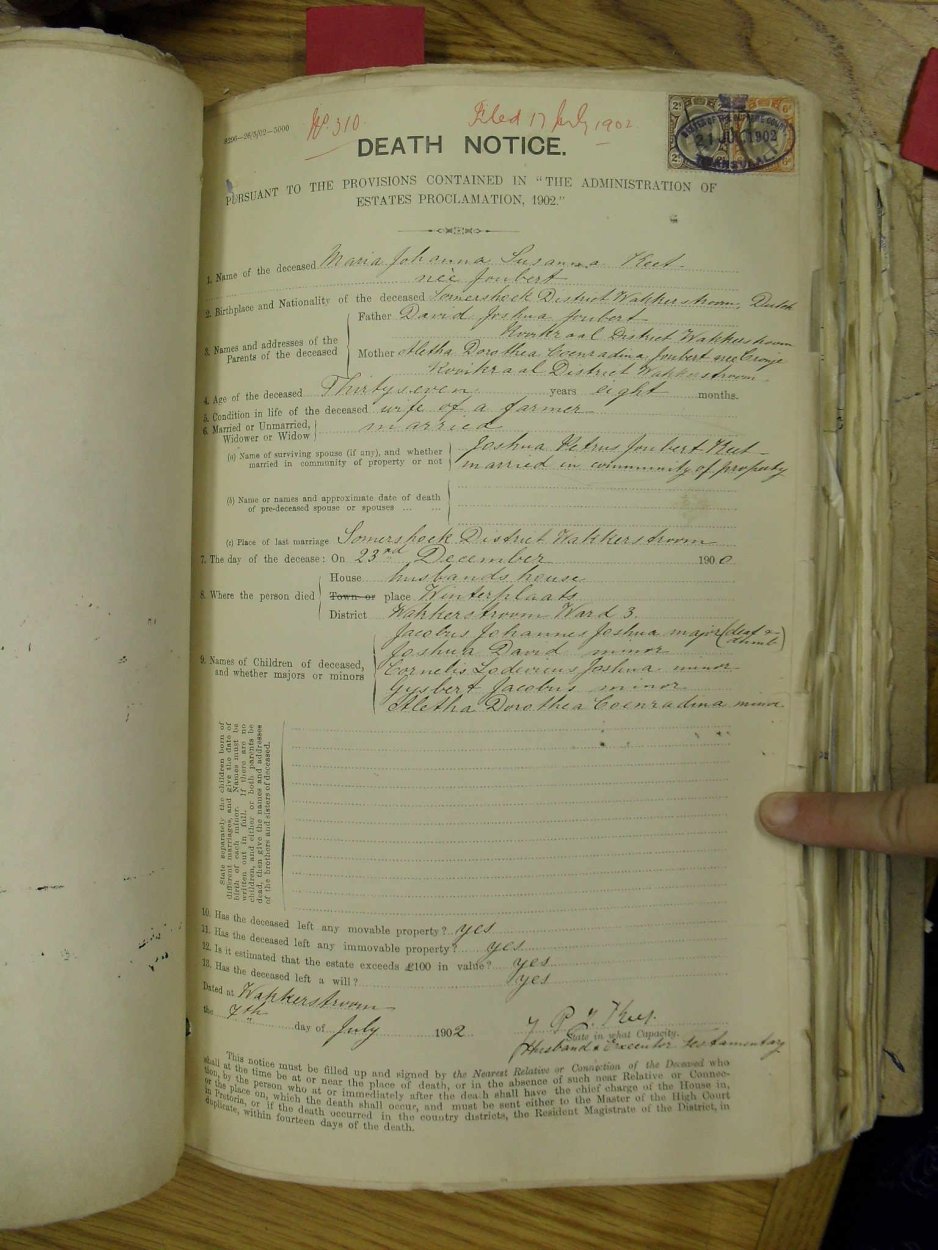 8296—26/5/02—5000
No 310.
Filed 17 July 1902
2d 6d
MASTER OF THE SUPREME COURT
21 JUL 1902
TRANSVAAL
DEATH NOTICE.
PURSUANT TO THE PROVISIONS CONTAINED IN "THE ADMINISTRATION OF
ESTATES PROCLAMATION, 1902."
1. Name of the deceased Maria Johanna Susanna Keet
neé Joubert
2. Birthplace and Nationality of the deceased Somershoek District Wakkerstroom, Dutch
3. Names and addresses of the Parents of the deceased
Father David Joshua Joubert
Kooikraal District Wakkerstroom
Mother Aletha Dorothea Coenradina Joubert nee Cronje
Kooikraal District Wakkerstroom
4. Age of the deceased Thirtyseven years eight months.
5. Condition in life of the deceased wife of a farmer
6. Married or Unmarried, Widower or Widow married
(a) Name of surviving spouse (if any), and whether
married in community of property or not
Joshua Petrus Joubert Keet
married in community of property
(b) Name or names and approximate date of death
of pre-deceased spouse or spouses ... ...
(c) Place of last marriage Somershoek District Wakkerstroom
7. The day of the decease: On 23rd December 1900
8. Where the person died
House husbands house
Town or place Winterplaats
District Wakkerstroom Ward 3.
9. Names of Children of deceased,
and whether majors or minors
Jacobus Johannes Joshua major (deaf & dumb)
Joshua David minor
Cornelis Lodevicus Joshua minor
Gysbert Jacobus minor
Aletha Dorothea Coenradina minor
State separately the children born of
different marriages, and give the date of
birth of each minor. Names must be
written out in full. If there are no
children, and either or both parents be
dead, then give the names and addresses
of the brothers and sisters of deceased.
10. Has the deceased left any movable property? yes
11. Has the deceased left any immovable property? yes
12. Is it estimated that the estate exceeds £100 in value? yes
13. Has the deceased left a will? yes
Dated at Wakkerstroom
the 7th day of July 1902
J. P. J. Keet
State in what Capacity.
Husband & Executor testamentary
This notice must be filled up and signed by the Nearest Relative or Connection of the Deceased who
shall at the time be at or near the place of death, or in the absence of such near Relative or Connec-
tion, by the person who at or immediately after the death shall have the chief charge of the House in,
or the place on, which the death shall occur, and must be sent either to the Master of the High Court
in Pretoria, or if the death occurred in the country districts, the Resident Magistrate of the District, in
duplicate, within fourteen days of the death.